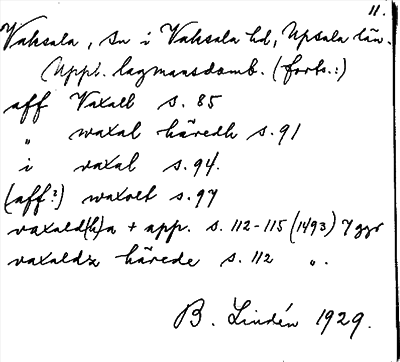 11.
Vaksala, sn i Vaksala hd, Upsala län.
Uppl. lagmansdomb. (forts.:)
aff Vaxall s. 85
" waxal häredh s. 91
i vaxal s. 94.
(aff?) waxolt s. 97
vaxald(h)a + app. s. 112-115 (1493) 7 ggr
vaxaldz härede s. 112 ".
B. Lindén 1929.